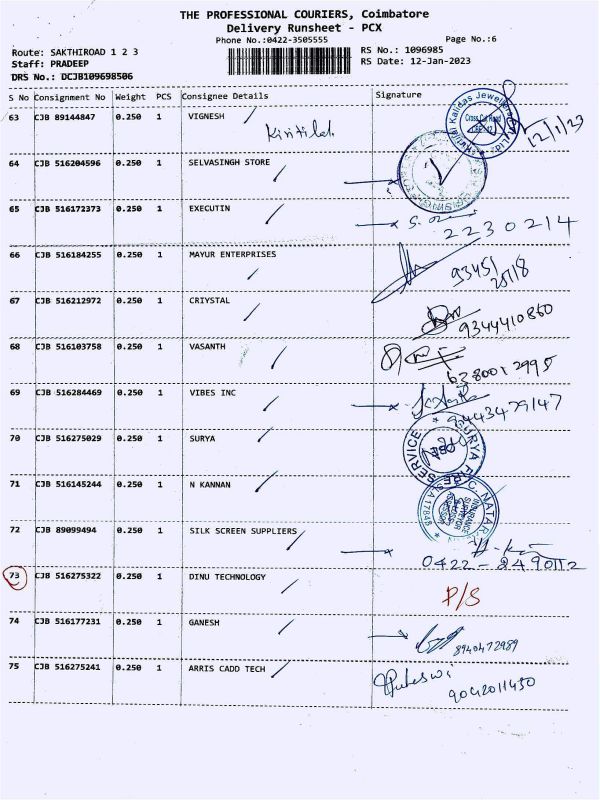 THE PROFESSIONAL COURIERS, Coimbatore
Delivery Runsheet - PCX
Phone No.:0422-3505555
Page No.:6
Route: SAKTHIROAD 1 2 3
RS No.: 1096985
Staff: PRADEEP
RS Date: 12-Jan-2023
DRS No.: DCJB109698506
S No Consignment No Weight PCS Consignee Details Signature
63 CJB 89144847 0.250 1 VIGNESH
12/1/23
64 CJB 516204596 0.250 1 SELVASINGH STORE
65 CJB 516172373 0.250 1 EXECUTIN
2230214
66 CJB 516184255 0.250 1 MAYUR ENTERPRISES
93451
67 CJB 516212972 0.250 1 CRIYSTAL
9344410860
68 CJB 516103758 0.250 1 VASANTH
6380012995
69 CJB 516284469 0.250 1 VIBES INC
9443479147
70 CJB 516275029 0.250 1 SURYA
SURYA FIRE SERVICE
71 CJB 516145244 0.250 1 N KANNAN
INSURANCE SURVEYOR
72 CJB 89099494 0.250 1 SILK SCREEN SUPPLIERS
0422-2490112
73 CJB 516275322 0.250 1 DINU TECHNOLOGY
P/S
74 CJB 516177231 0.250 1 GANESH
8940472989
75 CJB 516275241 0.250 1 ARRIS CADD TECH
9042011430